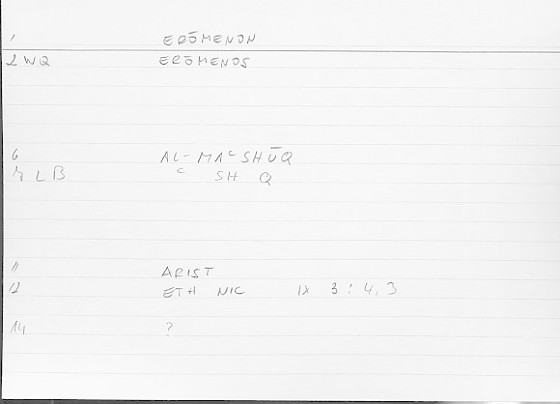 1 ERŌMENON
2 WQ ERŌMENOS
6 AL-MAᶜSHŪQ
7 LB ᶜ SH Q
11 ARIST
12 ETH NIC IX 3 : 4.3
14 ?